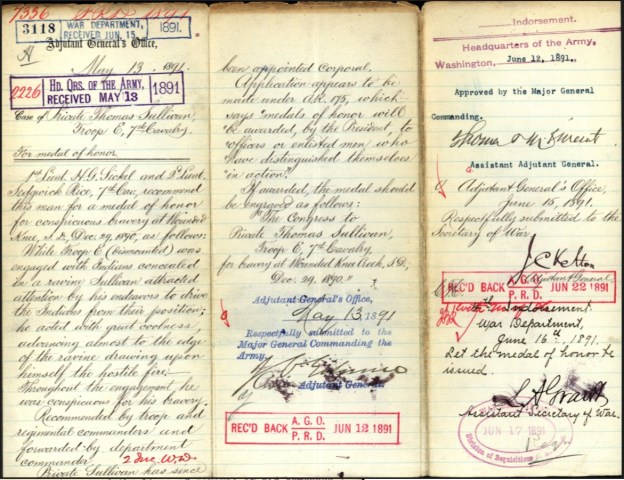 7356
3118
WAR DEPARTMENT,
RECEIVED JUN. 15
1891.
A
Adjutant General's Office,
May 13, 1891.
2226
HD. QRS. OF THE ARMY,
RECEIVED MAY 13
1891
Case of Private Thomas Sullivan,
Troop E, 7th Cavalry.
For medal of honor
1st Lieut. H. G. Sickel and 2d Lieut.
Sedgwick Rice, 7th Cav., recommend
this man for a medal of honor
for conspicuous bravery at Wounded
Knee, S.D., Dec. 29, 1890, as follows:
While Troop E (Dismounted) was
engaged with Indians concealed
in a ravine Sullivan attracted
attention by his endeavors to drive
the Indians from their position;
he acted with great coolness,
advancing almost to the edge
of the ravine drawing upon
himself the hostile fire.
Throughout the engagement he
was conspicuous for his bravery.
Recommended by troop and
regimental commanders and
forwarded by department
commander
2 Inc. W.D.
Private Sullivan has since
been appointed Corporal.
Application appears to be
made under A.R. 175, which
says "medals of honor will
be awarded, by the President, to
officers or enlisted men who
have distinguished themselves
in action."
If awarded, the medal should
be engraved as follows:
"The Congress to
Private Thomas Sullivan,
Troop E, 7th Cavalry
for bravery at Wounded Knee Creek, S.D.,
Dec. 29, 1890."
Adjutant-General's Office,
May 13 1891
Respectfully submitted to the
Major General Commanding the
Army.
Adjutant General.
REC'D BACK
A. G. O.
P. R. D.
JUN 12 1891
Indorsement.
Headquarters of the Army,
Washington, June 12, 1891.
Approved by the Major General
Commanding.
Assistant Adjutant General.
Adjutant General's Office,
June 15, 1891.
Respectfully submitted to the
Secretary of War.
J. C. Kelton
Adjutant General
REC'D BACK
A. G. O.
P. R. D.
JUN 22 1891
Indorsement.
War Department,
June 16th, 1891.
Let the medal of honor be
issued.
L. A. Grant
Assistant Secretary of War.
JUN 17 1891
Division of Requisitions